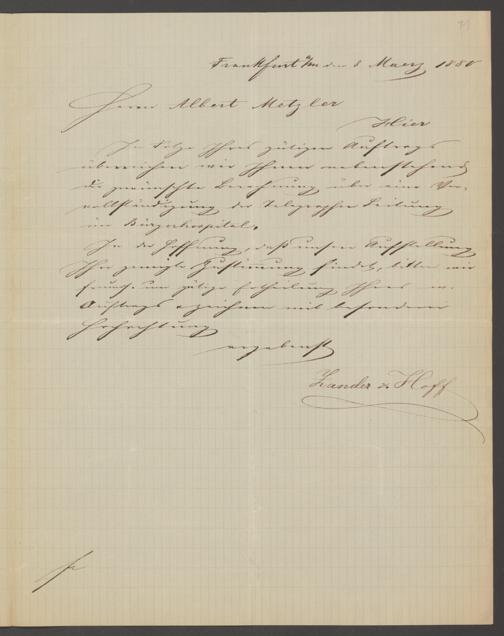 Frankfurt a/m den 8 Maerz 1880
Herrn Albert Metzler
Hier
In Folge Ihres gütigen Auftrags
überreichen wir Ihnen nebenstehend
die gewünschte Berechnung über eine Ver-
vollständigung der Telegraphen Leitung
im Bürgerhospital.
In der Hoffnung, daß unsere Aufstellung
Ihre geneigte Zustimmung findet, bitten wir
um gütige Ertheilung Ihres w.
Auftrags & zeichnen mit besonderer
Hochachtung
ergebenst
Zander & Hoff